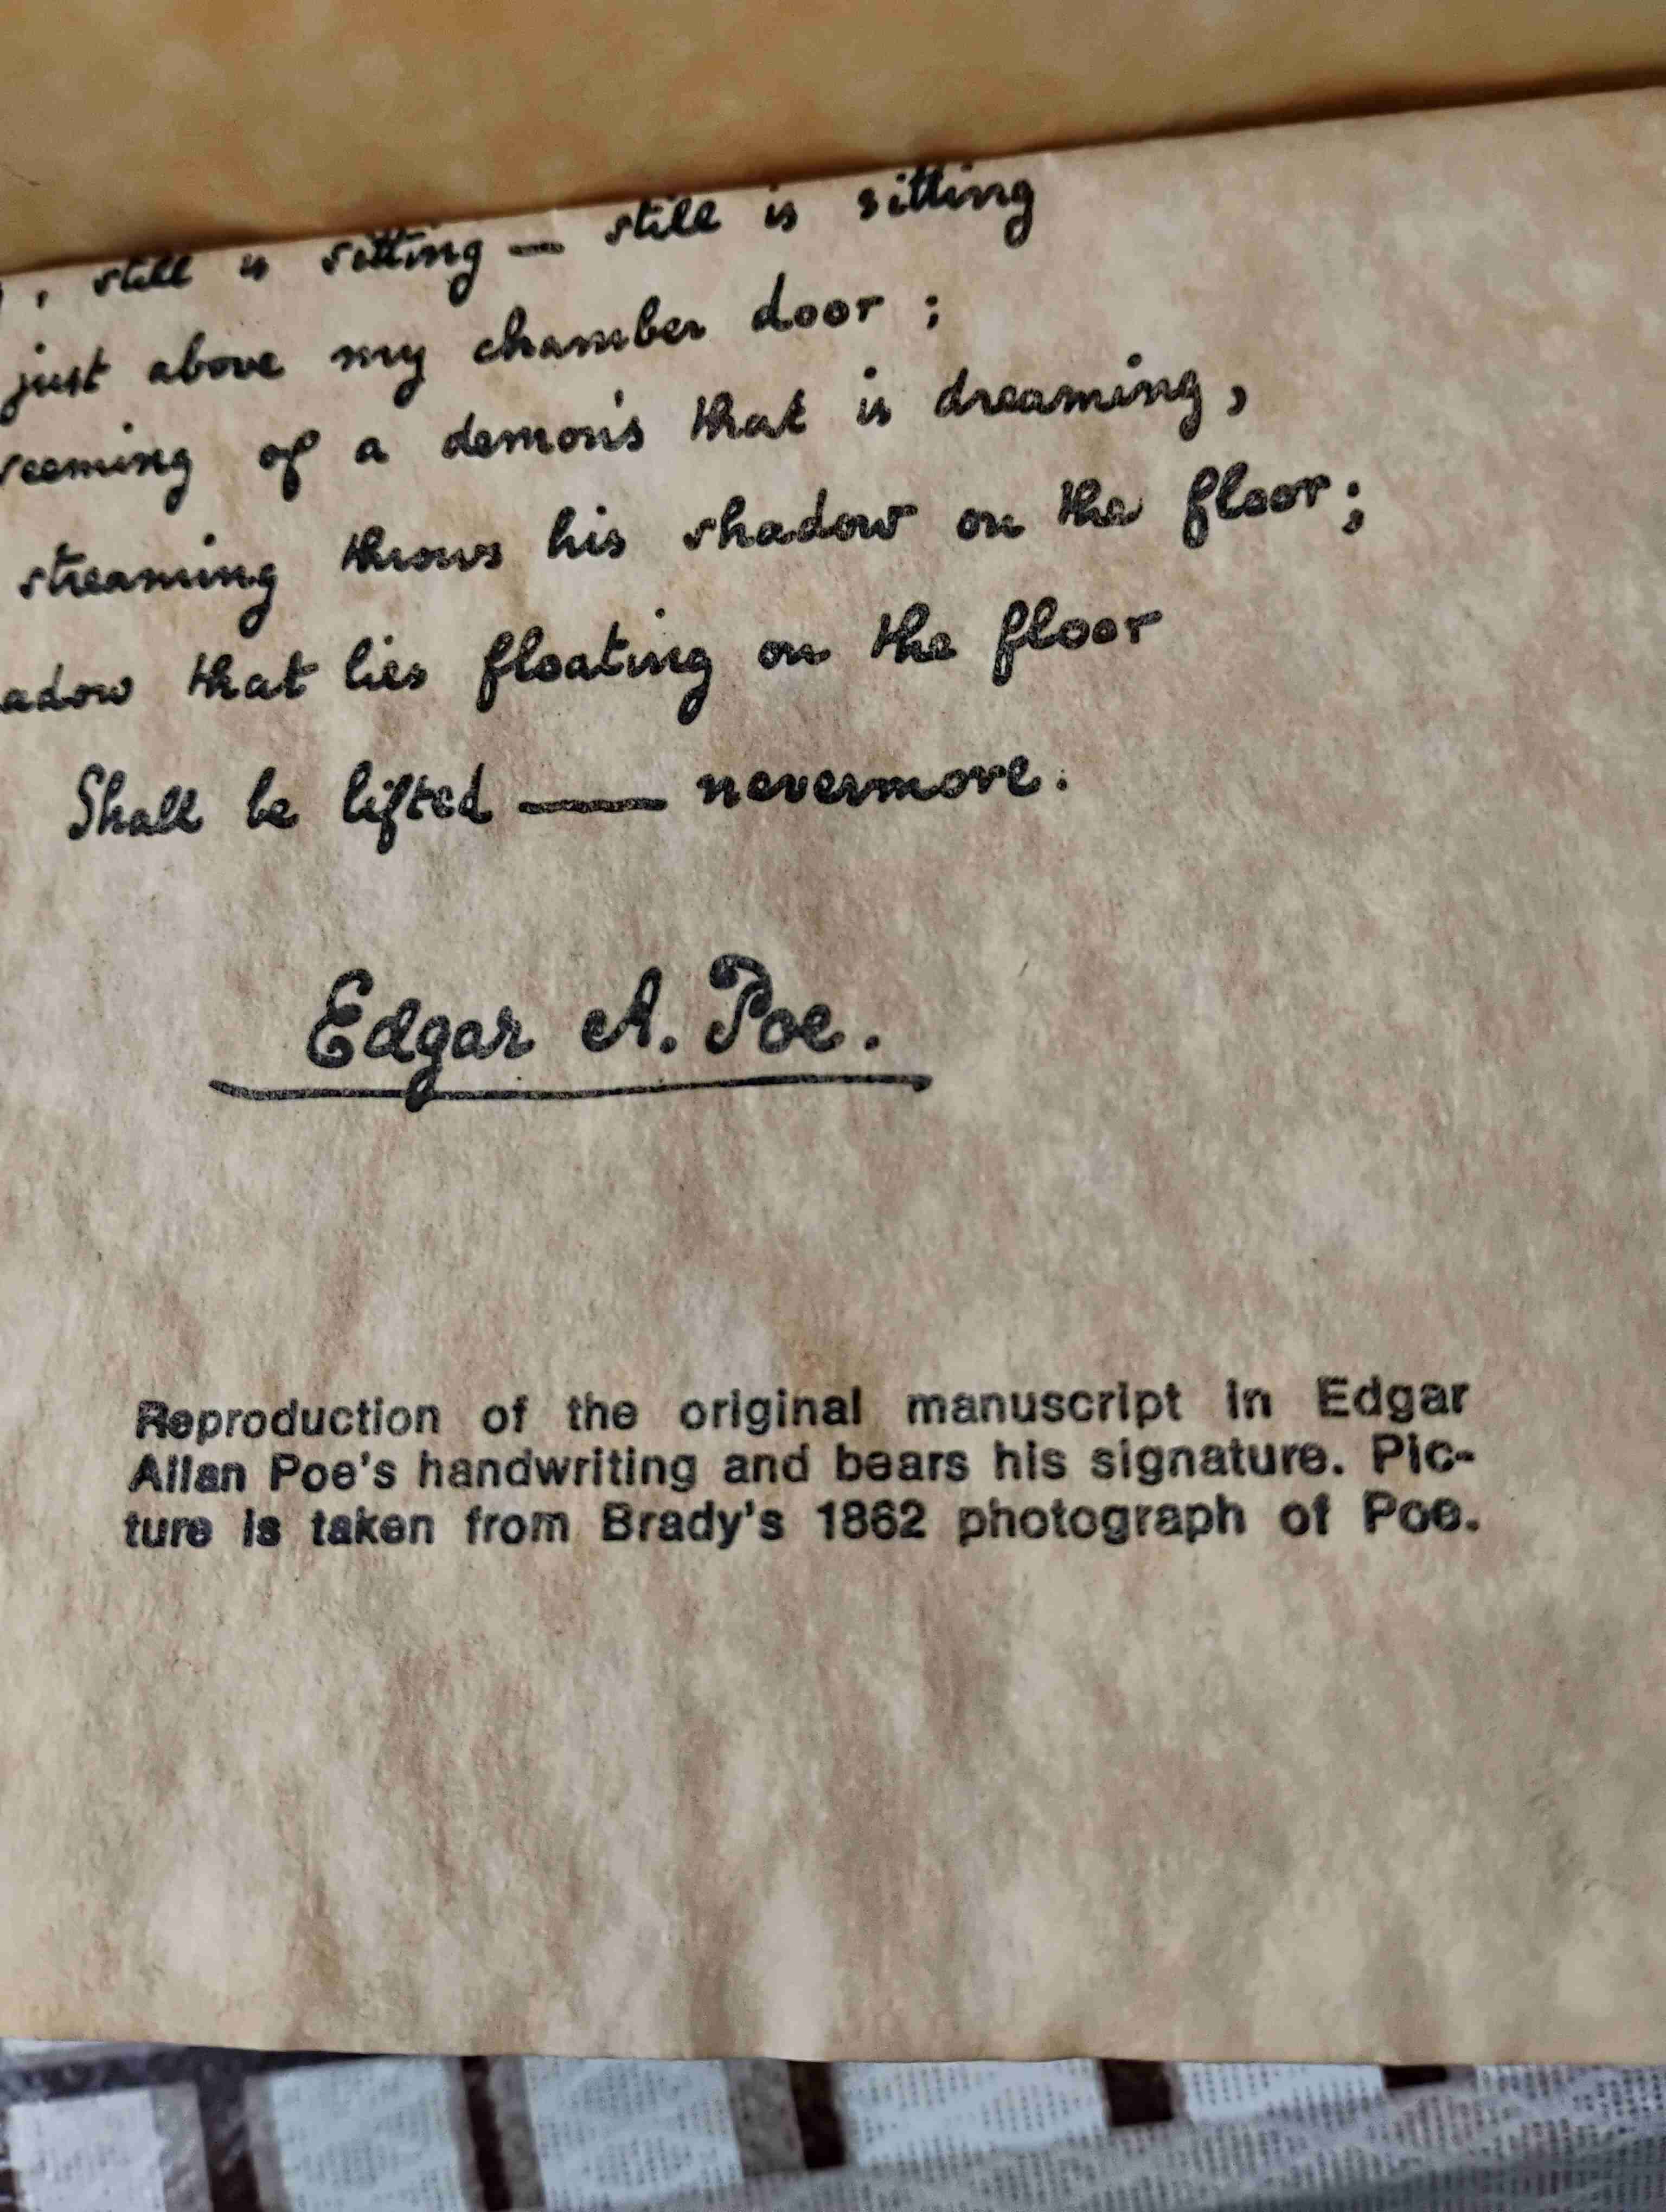 , still is sitting — still is sitting
just above my chamber door ;
seeming of a demon's that is dreaming,
streaming throws his shadow on the floor;
adow that lies floating on the floor
Shall be lifted —— nevermore.
Edgar A. Poe.
Reproduction of the original manuscript in Edgar
Allan Poe's handwriting and bears his signature. Pic-
ture is taken from Brady's 1862 photograph of Poe.